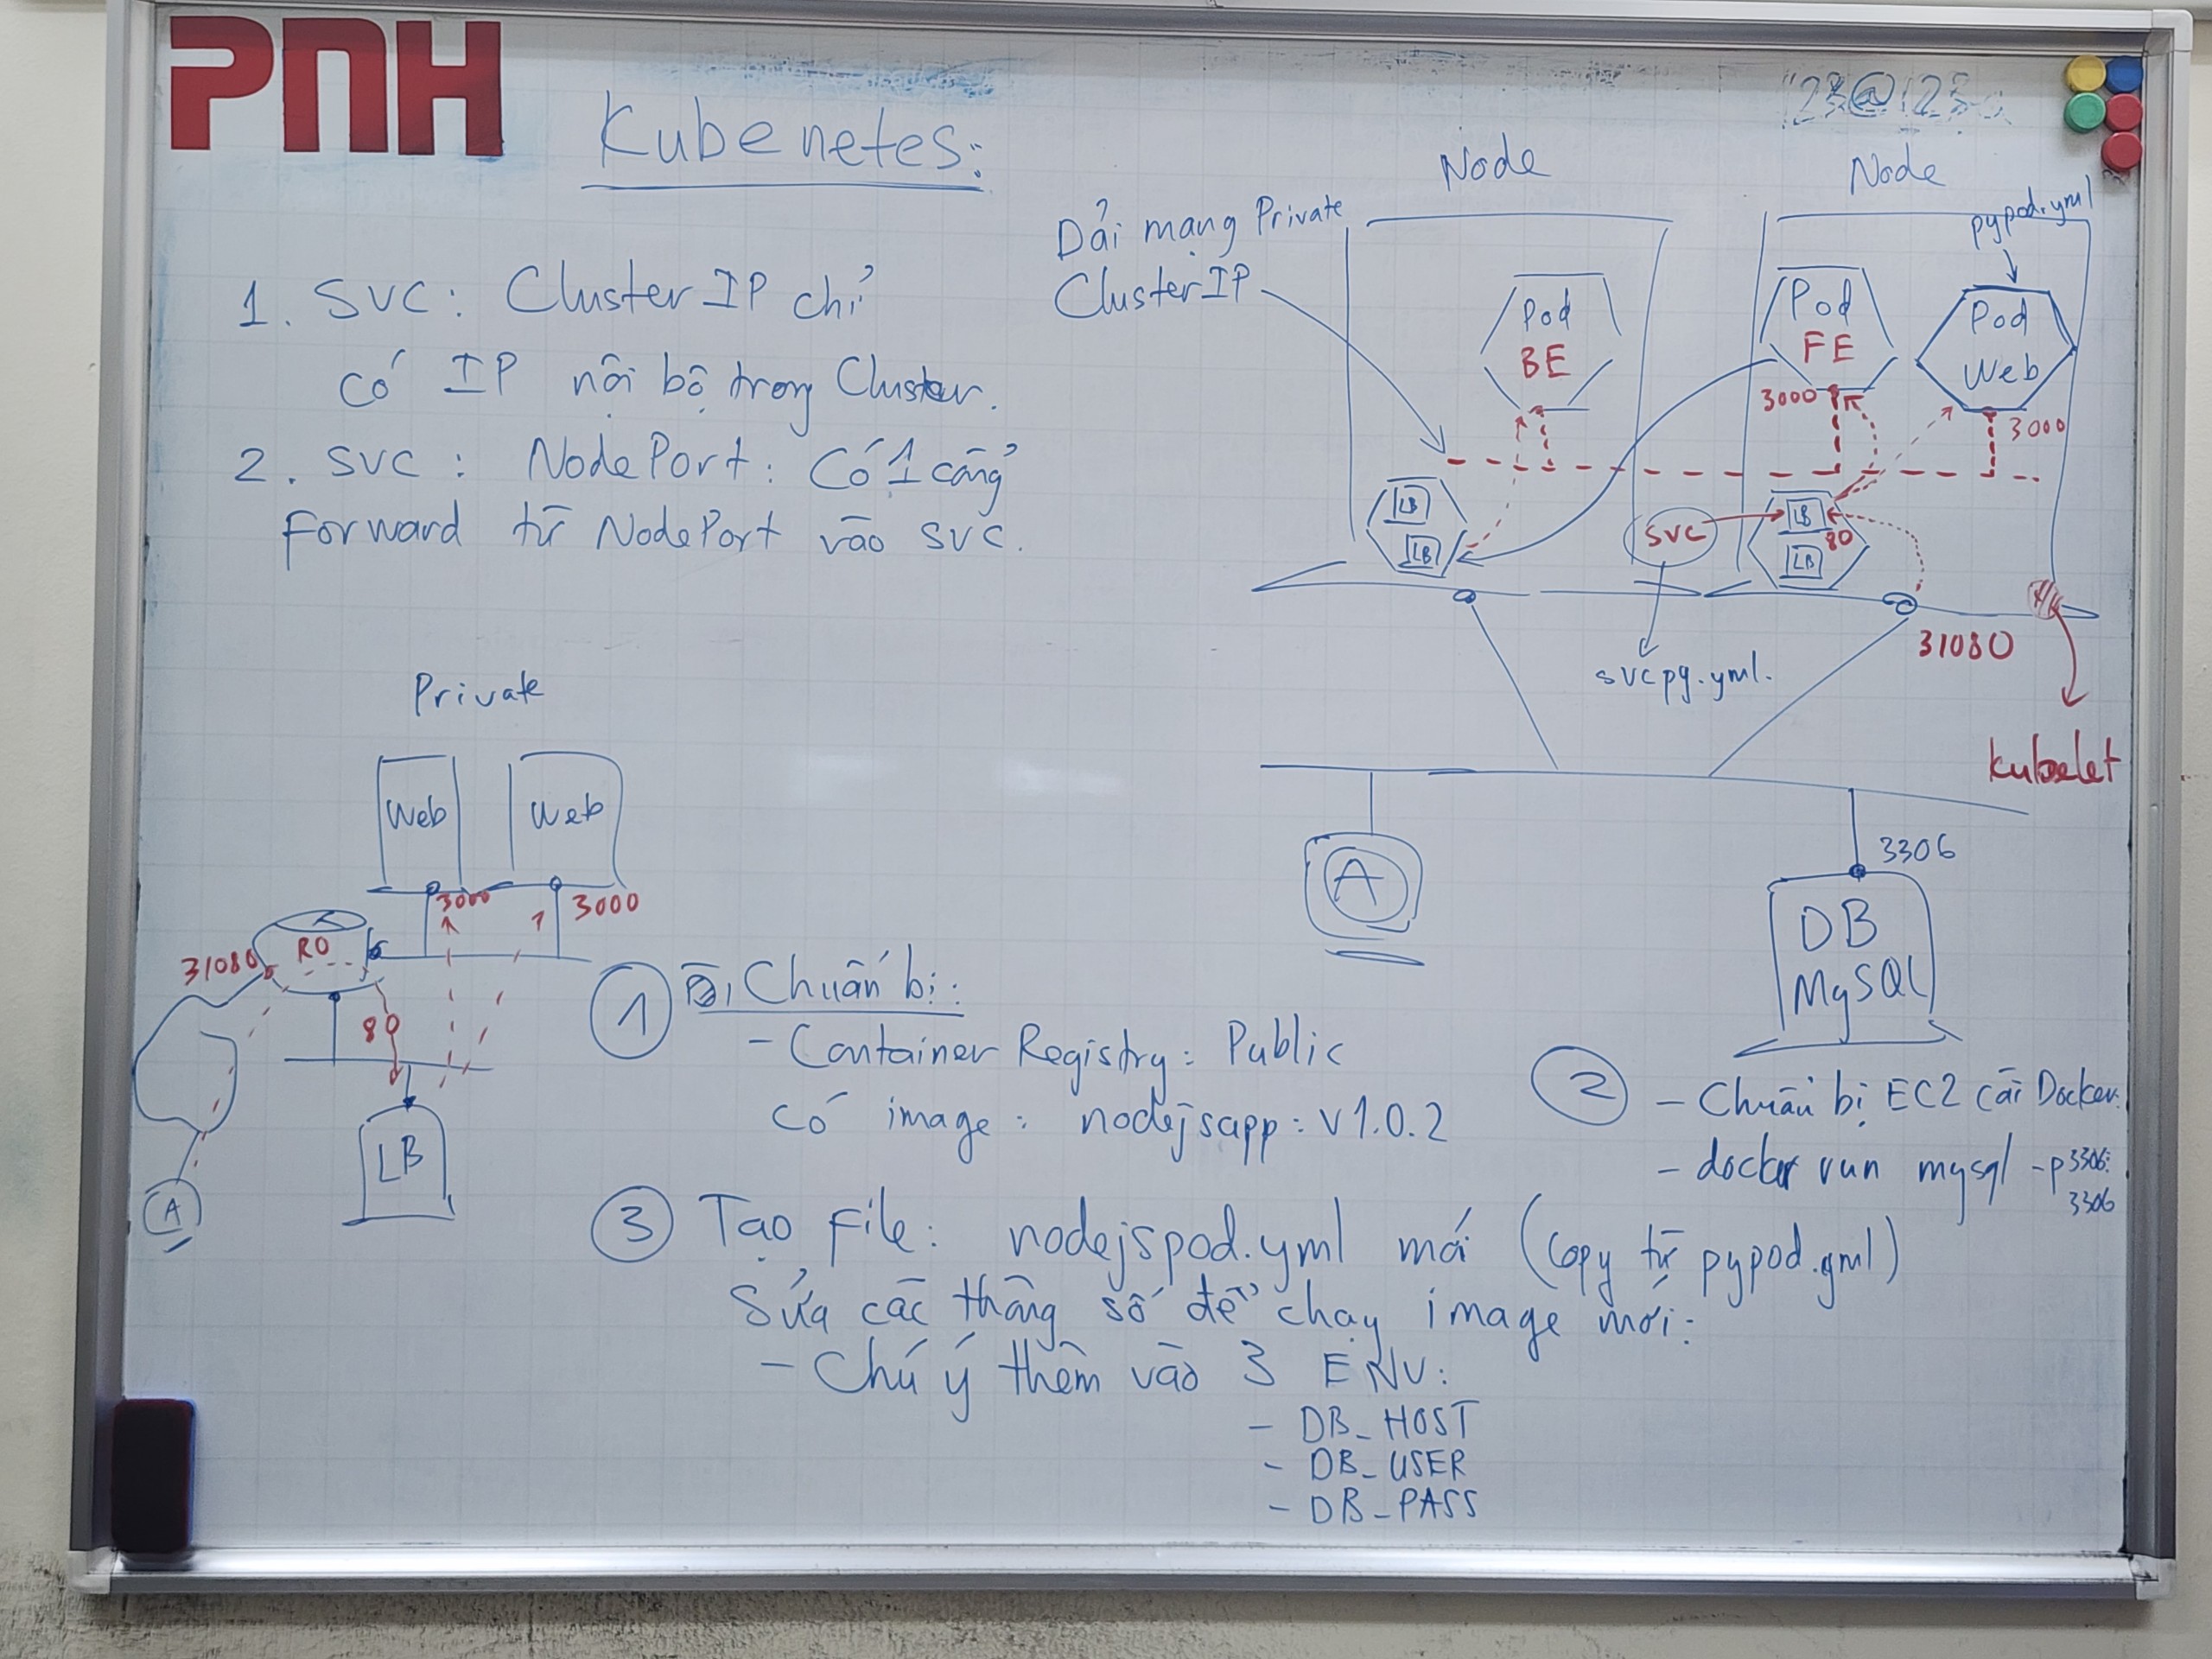 PNH
Kubenetes:
123@123a
1. SVC: ClusterIP chỉ
có IP nội bộ trong Cluster.
2. SVC: NodePort: Có 1 cổng
Forward từ NodePort vào SVC.
Node
Node
Dải mạng Private
ClusterIP
pypod.yml
Pod
BE
Pod
FE
Pod
Web
3000
3000
LB
LB
SVC
LB
80
LB
31080
svcpy.yml.
kubelet
Private
Web
Web
3000
3000
31080
RO
80
LB
A
A
3306
DB
MySQL
1 Chuẩn bị:
- Container Registry: Public
có image: nodejsapp:v1.0.2
2 - Chuẩn bị EC2 cài Docker.
- docker run mysql -p 3306:
3306
3 Tạo File: nodejspod.yml mới (Copy từ pypod.yml)
Sửa các thông số để chạy image mới:
- Chú ý thêm vào 3 ENV:
- DB_HOST
- DB_USER
- DB_PASS